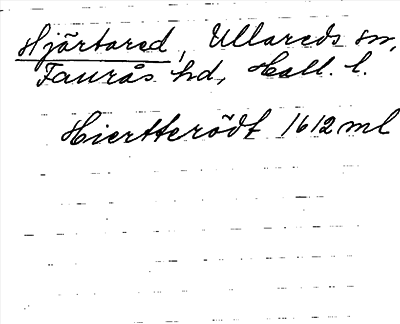 Hjärtared, Ullareds sn,
Faurås hd, Hall. l.
Hiertterödt 1612 ml